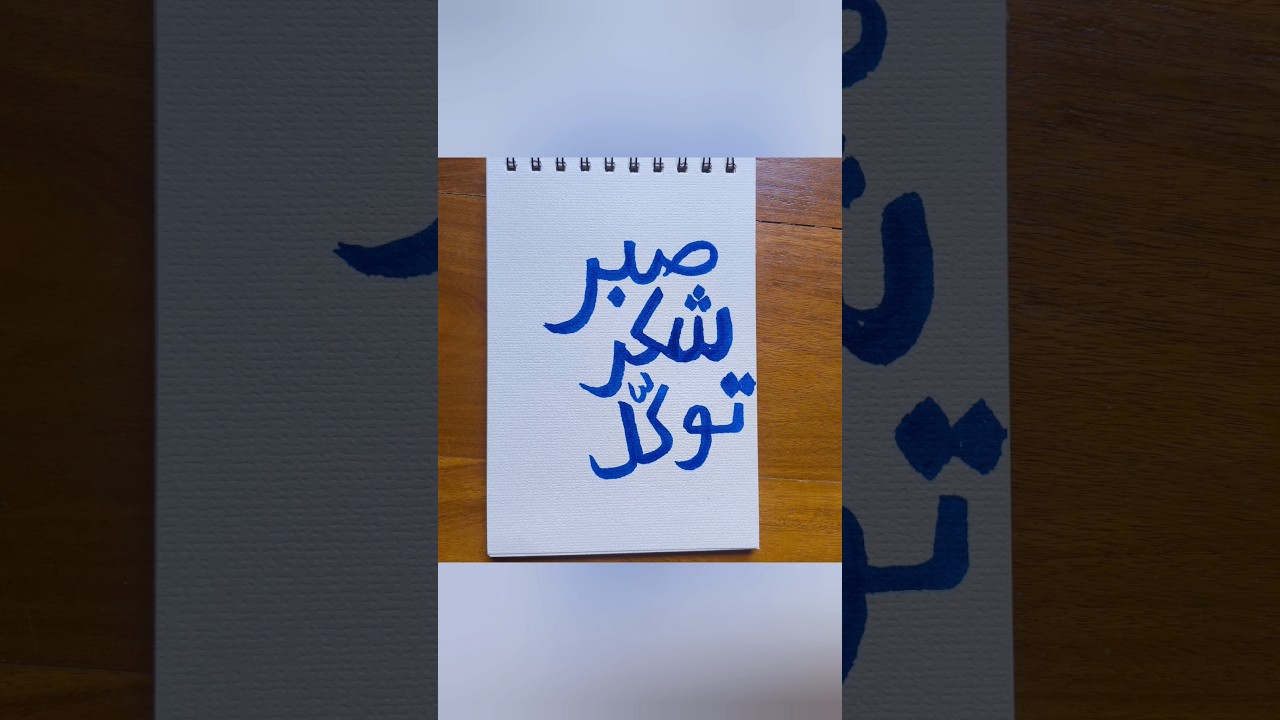 صبر
شكر
توكّل